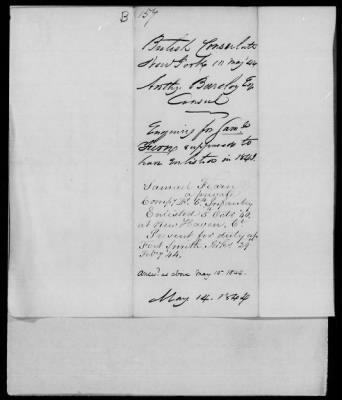 B 157
British Consulate
New York 11 May 44
Anthy. Barclay Esq
Consul
Enquiring for Saml.
Fearn supposed to
have enlisted in 1840.
Samuel Fearn
a private
Compy. F. 6th Infantry
Enlisted 5 Octr 40,
at New Haven, Ct
Present for duty at
Fort Smith Arks 29
Feby 44.
Answd. as above May 15. 1844.
May 14. 1844